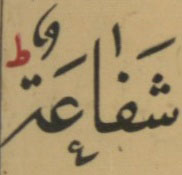 شَفَاعَةٌ ؕ